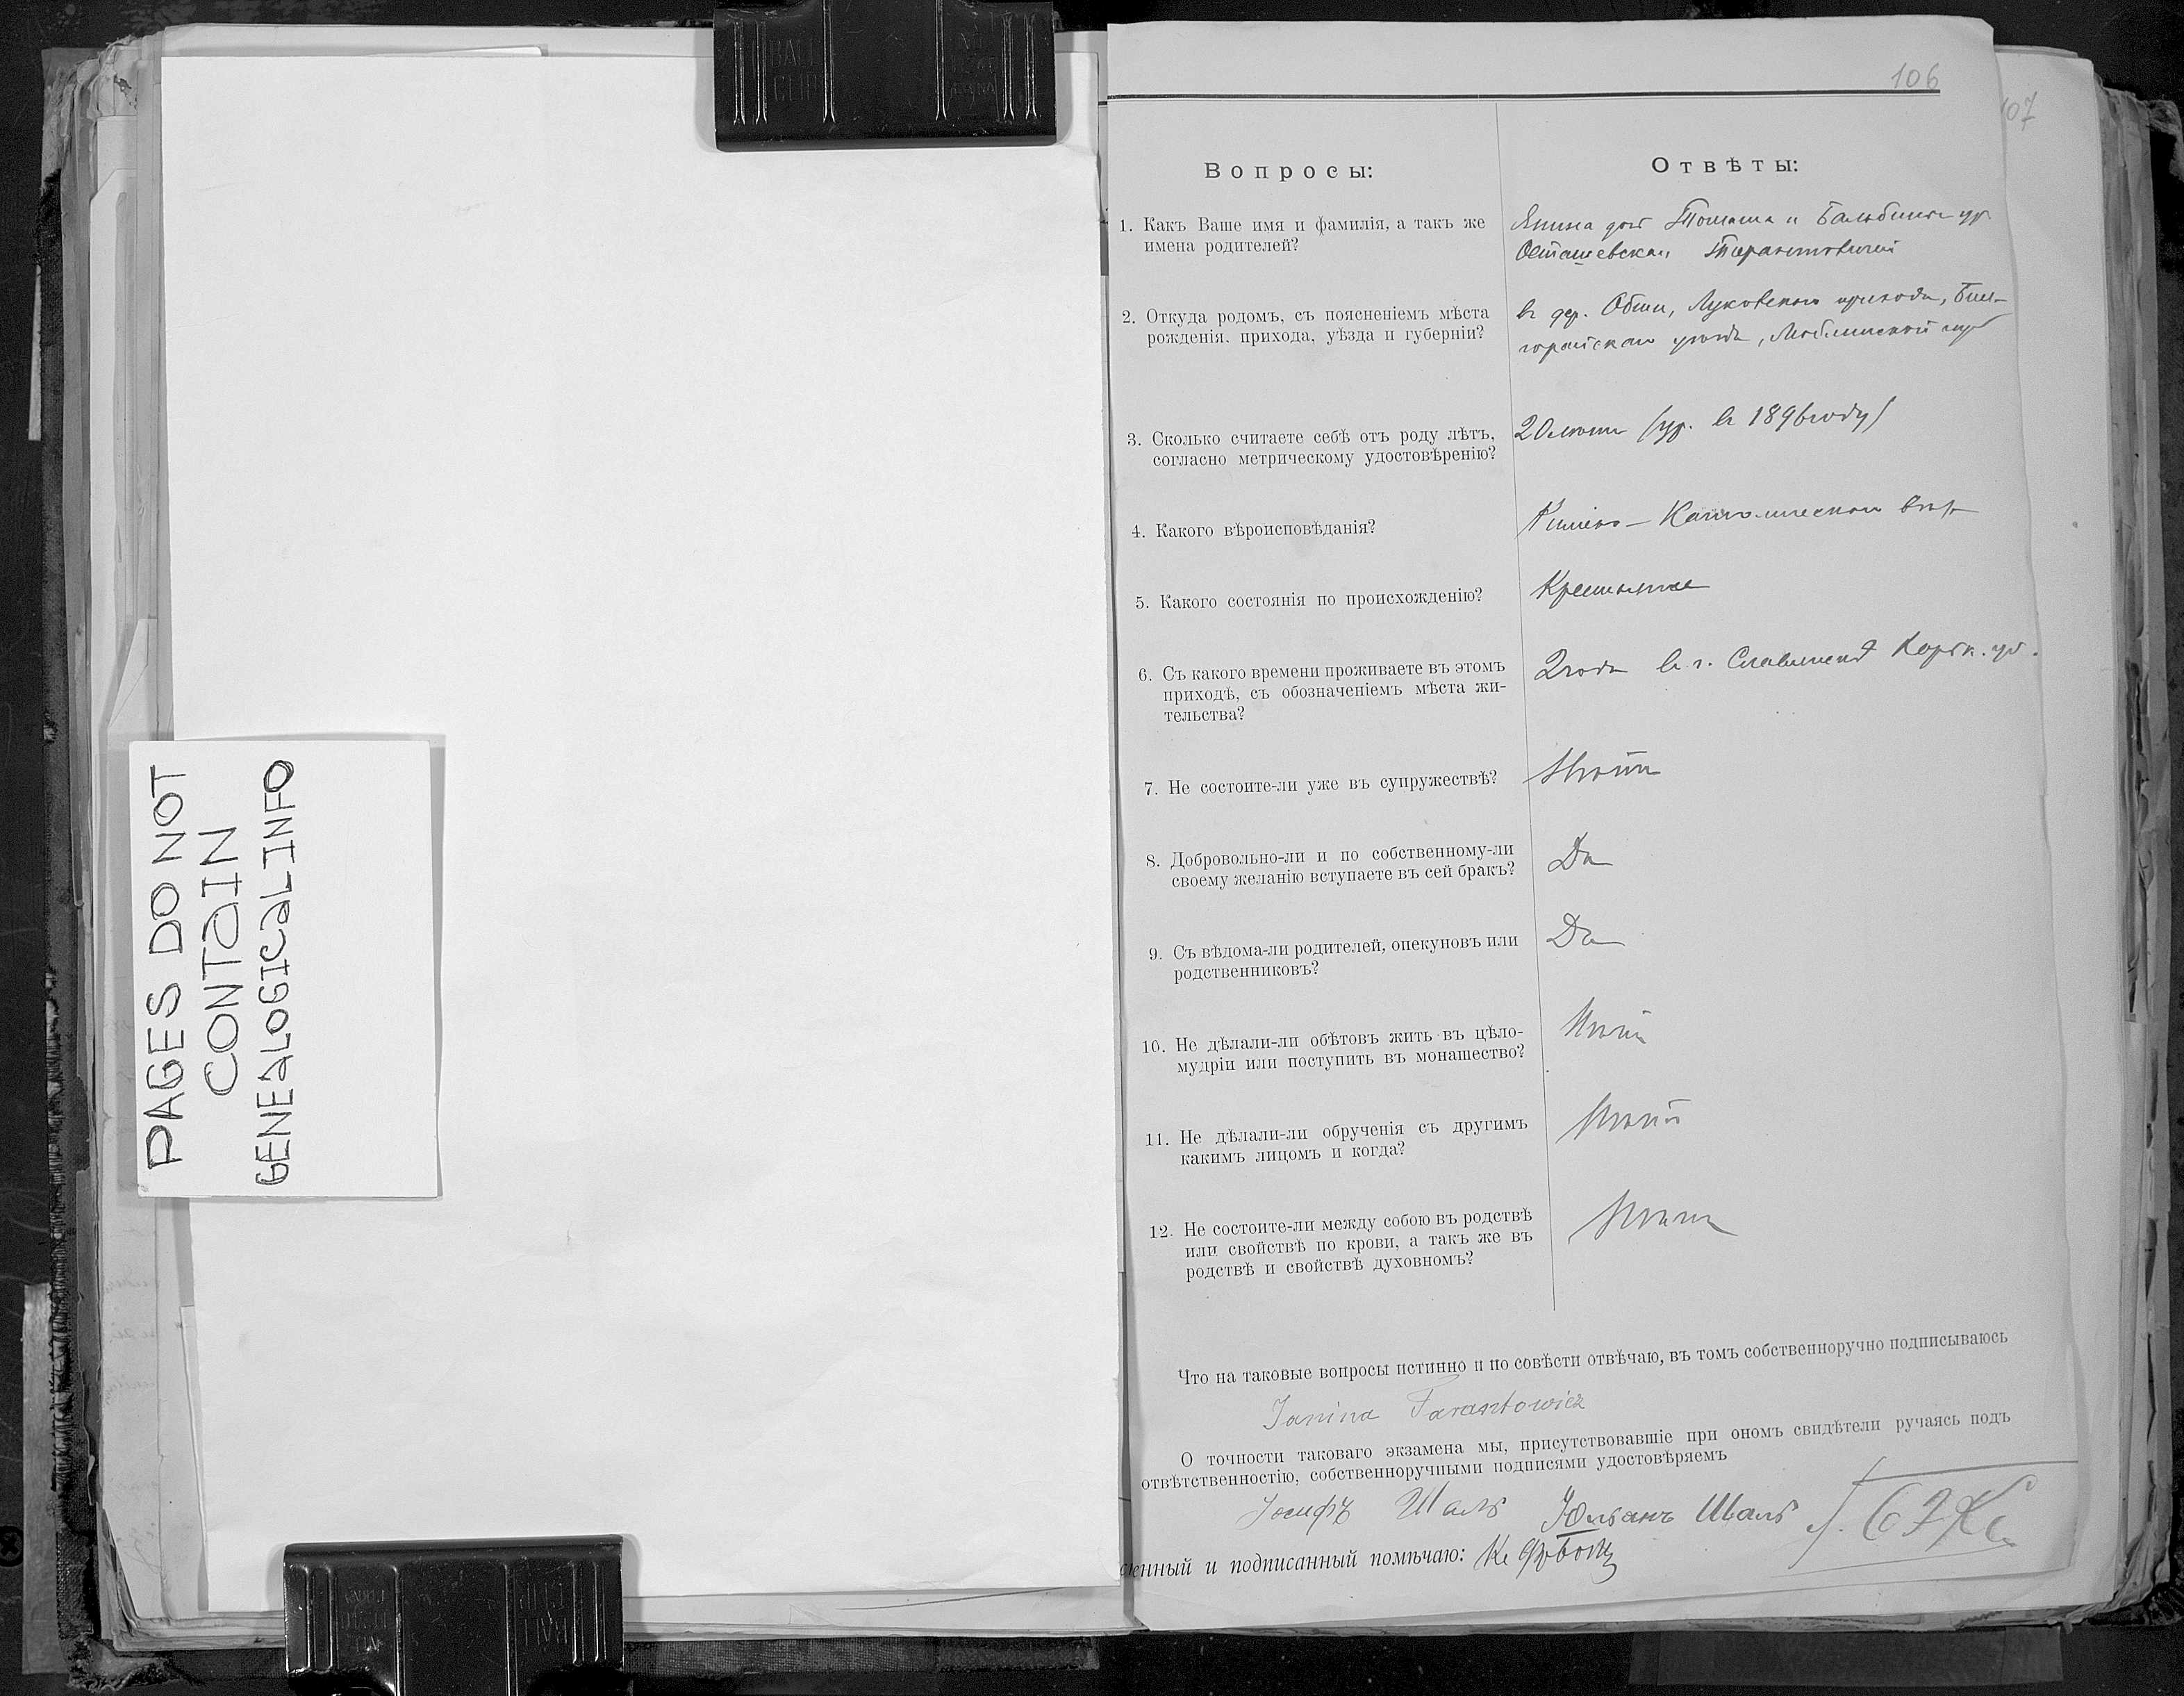 BALL
CLIP
106
107
PAGES DO NOT
CONTAIN
GENEALOGICAL INFO
Вопросы:
Отвѣты:
1. Какъ Ваше имя и фамилія, а такъ же
имена родителей?
Янина доч Томаша и Бальбины ур.
Осташевская Тарантовичъ
2. Откуда родомъ, съ поясненіемъ мѣста
рожденія, прихода, уѣзда и губерніи?
въ дер. Обши, Луковскаго прихода, Бил-
горайскаго уѣзда, Люблинской губ
3. Сколько считаете себѣ отъ роду лѣтъ,
согласно метрическому удостовѣренію?
20 (ур. въ 1896 году)
4. Какого вѣроисповѣданія?
Римско-Католическаго вѣр.
5. Какого состоянія по происхожденію?
6. Съ какого времени проживаете въ этомъ
приходѣ, съ обозначеніемъ мѣста жи-
тельства?
2 года в г. Славянскѣ Харьк. губ.
7. Не состоите-ли уже въ супружествѣ?
Нѣтъ
8. Добровольно-ли и по собственному-ли
своему желанію вступаете въ сей бракъ?
Да
9. Съ вѣдома-ли родителей, опекуновъ или
родственниковъ?
Да
10. Не дѣлали-ли обѣтовъ жить въ цѣло-
мудріи или поступить въ монашество?
Нѣтъ
11. Не дѣлали-ли обрученія съ другимъ
какимъ лицомъ и когда?
Нѣтъ
12. Не состоите-ли между собою въ родствѣ
или свойствѣ по крови, а такъ же въ
родствѣ и свойствѣ духовномъ?
Нѣтъ
Что на таковые вопросы истинно и по совѣсти отвѣчаю, въ томъ собственноручно подписываюсь
Janina Tarantowicz
О точности таковаго экзамена мы, присутствовавшіе при ономъ свидѣтели ручаясь подъ
отвѣтственностію, собственноручными подписями удостовѣряемъ
Іосифъ Шаль Юльанъ Шаль
енный и подписанный помѣчаю:
BALL
CLIP